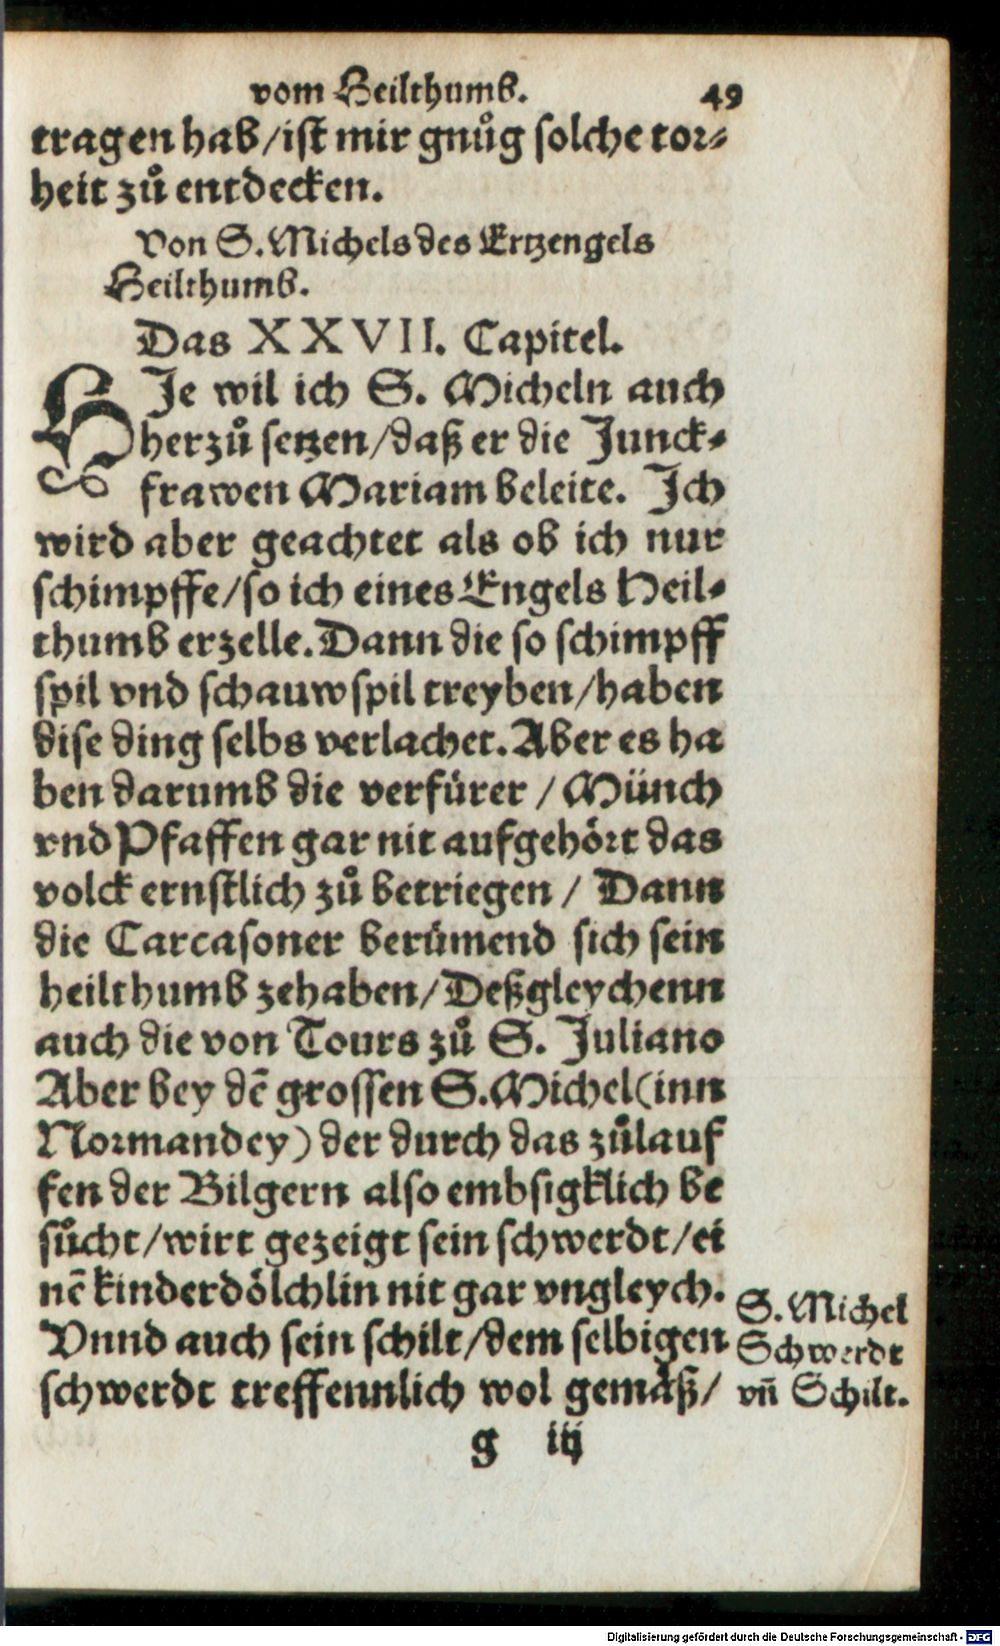 vom Heilthumb. 49
tragen hab/ist mir gnůg solche tor⸗
heit zů entdecken.
Von S. Michels des Ertzengels
Heilthumb.
Das XXVII. Capitel.
HIe wil ich S. Micheln auch
herzů setzen/daß er die Junck⸗
frawen Mariam beleite. Ich
wird aber geachtet als ob ich nur
schimpffe/so ich eines Engels Heil⸗
thumb erzelle. Dann die so schimpff
spil vnd schauwspil treyben/haben
dise ding selbs verlachet. Aber es ha
ben darumb die verfürer / Münch
vnd Pfaffen gar nit aufgehört das
volck ernstlich zů betriegen / Dann
die Carcasoner berümend sich sein
heilthumb zehaben/Deßgleychenn
auch die von Tours zů S. Juliano
Aber bey dē grossen S. Michel (inn
Normandey) der durch das zůlauf
fen der Bilgern also embsigklich be
sůcht/wirt gezeigt sein schwerdt/ei
nē kinderdölchlin nit gar vngleych.
Vnnd auch sein schilt/dem selbigen
schwerdt treffennlich wol gemäß/
S. Michel
Schwerdt
vñ Schilt.
g iij
Digitalisierung gefördert durch die Deutsche Forschungsgemeinschaft - DFG